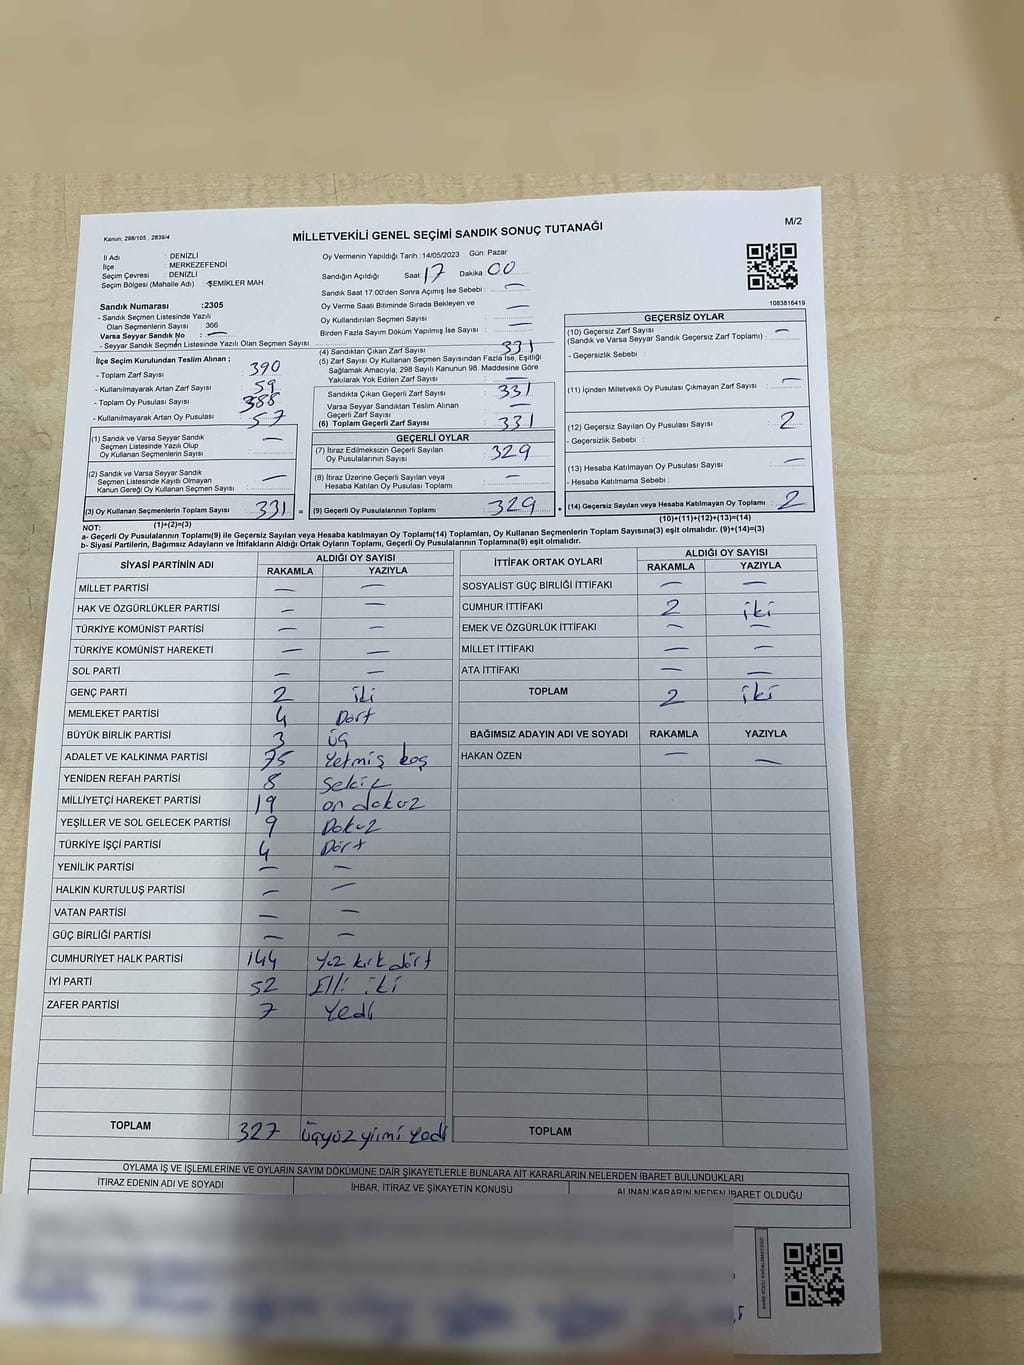 Kanun, 298/105 , 2839/4
MİLLETVEKİLİ GENEL SEÇİMİ SANDIK SONUÇ TUTANAĞI
M/2
İl Adı : DENİZLİ
İlçe : MERKEZEFENDİ
Seçim Çevresi : DENİZLİ
Seçim Bölgesi (Mahalle Adı) : ŞEMİKLER MAH
Sandık Numarası :2305
- Sandık Seçmen Listesinde Yazılı
Olan Seçmenlerin Sayısı : 366
Varsa Seyyar Sandık No : —
- Seyyar Sandık Seçmen Listesinde Yazılı Olan Seçmen Sayısı
Oy Vermenin Yapıldığı Tarih :14/05/2023 Gün: Pazar
Sandığın Açıldığı Saat 17 Dakika 00
Sandık Saat 17:00'den Sonra Açımış İse Sebebi : —
Oy Verme Saati Bitiminde Sırada Bekleyen ve
Oy Kullandırılan Seçmen Sayısı —
Birden Fazla Sayım Döküm Yapılmış İse Sayısı —
1083816419
İlçe Seçim Kurulundan Teslim Alınan ;
- Toplam Zarf Sayısı 390
- Kullanılmayarak Artan Zarf Sayısı 59
- Toplam Oy Pusulası Sayısı 388
- Kullanılmayarak Artan Oy Pusulası 57
(1) Sandık ve Varsa Seyyar Sandık
Seçmen Listesinde Yazılı Olup
Oy Kullanan Seçmenlerin Sayısı : —
(2) Sandık ve Varsa Seyyar Sandık
Seçmen Listesinde Kayıtlı Olmayan
Kanun Gereği Oy Kullanan Seçmen Sayısı : —
(3) Oy Kullanan Seçmenlerin Toplam Sayısı : 331 =
(1)+(2)=(3)
(4) Sandıktan Çıkan Zarf Sayısı : 331
(5) Zarf Sayısı Oy Kullanan Seçmen Sayısından Fazla İse, Eşitliği
Sağlamak Amacıyla, 298 Sayılı Kanunun 98. Maddesine Göre
Yakılarak Yok Edilen Zarf Sayısı : —
Sandıkta Çıkan Geçerli Zarf Sayısı : 331
Varsa Seyyar Sandıktan Teslim Alınan
Geçerli Zarf Sayısı : —
(6) Toplam Geçerli Zarf Sayısı : 331
GEÇERLİ OYLAR
(7) İtiraz Edilmeksizin Geçerli Sayılan
Oy Pusulalarının Sayısı : 329
(8) İtiraz Üzerine Geçerli Sayılan veya
Hesaba Katılan Oy Pusulası Toplamı : —
(9) Geçerli Oy Pusulalarının Toplamı : 329 +
GEÇERSİZ OYLAR
(10) Geçersiz Zarf Sayısı : —
(Sandık ve Varsa Seyyar Sandık Geçersiz Zarf Toplamı)
- Geçersizlik Sebebi :
(11) İçinden Milletvekili Oy Pusulası Çıkmayan Zarf Sayısı : —
(12) Geçersiz Sayılan Oy Pusulası Sayısı : 2
- Geçersizlik Sebebi :
(13) Hesaba Katılmayan Oy Pusulası Sayısı : —
- Hesaba Katılmama Sebebi :
(14) Geçersiz Sayılan veya Hesaba Katılmayan Oy Toplamı : 2
(10)+(11)+(12)+(13)=(14)
NOT:
a- Geçerli Oy Pusulalarının Toplamı(9) ile Geçersiz Sayılan veya Hesaba katılmayan Oy Toplamı(14) Toplamları, Oy Kullanan Seçmenlerin Toplam Sayısına(3) eşit olmalıdır. (9)+(14)=(3)
b- Siyasi Partilerin, Bağımsız Adayların ve İttifakların Aldığı Ortak Oyların Toplamı, Geçerli Oy Pusulalarının Toplamına(9) eşit olmalıdır.
SİYASİ PARTİNİN ADI ALDIĞI OY SAYISI
RAKAMLA YAZIYLA
MİLLET PARTİSİ — —
HAK VE ÖZGÜRLÜKLER PARTİSİ — —
TÜRKİYE KOMÜNİST PARTİSİ — —
TÜRKİYE KOMÜNİST HAREKETİ — —
SOL PARTİ — —
GENÇ PARTİ 2 iki
MEMLEKET PARTİSİ 4 Dört
BÜYÜK BİRLİK PARTİSİ 3 üç
ADALET VE KALKINMA PARTİSİ 75 Yetmiş beş
YENİDEN REFAH PARTİSİ 8 Sekiz
MİLLİYETÇİ HAREKET PARTİSİ 19 on dokuz
YEŞİLLER VE SOL GELECEK PARTİSİ 9 Dokuz
TÜRKİYE İŞÇİ PARTİSİ 4 Dört
YENİLİK PARTİSİ — —
HALKIN KURTULUŞ PARTİSİ — —
VATAN PARTİSİ — —
GÜÇ BİRLİĞİ PARTİSİ — —
CUMHURİYET HALK PARTİSİ 144 Yüz kırk dört
İYİ PARTİ 52 Elli iki
ZAFER PARTİSİ 7 Yedi
TOPLAM 327 üçyüz yirmi Yedi
İTTİFAK ORTAK OYLARI ALDIĞI OY SAYISI
RAKAMLA YAZIYLA
SOSYALİST GÜÇ BİRLİĞİ İTTİFAKI — —
CUMHUR İTTİFAKI 2 iki
EMEK VE ÖZGÜRLÜK İTTİFAKI — —
MİLLET İTTİFAKI — —
ATA İTTİFAKI — —
TOPLAM 2 iki
BAĞIMSIZ ADAYIN ADI VE SOYADI RAKAMLA YAZIYLA
HAKAN ÖZEN — —
TOPLAM
OYLAMA İŞ VE İŞLEMLERİNE VE OYLARIN SAYIM DÖKÜMÜNE DAİR ŞİKAYETLERLE BUNLARA AİT KARARLARIN NELERDEN İBARET BULUNDUKLARI
İTİRAZ EDENİN ADI VE SOYADI İHBAR, İTİRAZ VE ŞİKAYETİN KONUSU ALINAN KARARIN NEDEN İBARET OLDUĞU